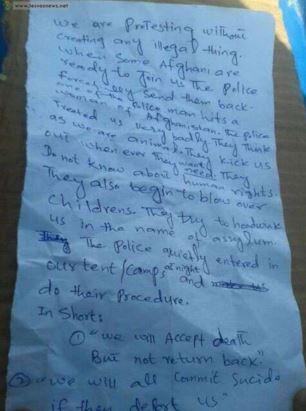 www.lesvosnews.net
We are Protesting without
creating any illegal thing.
when some Afghani are
ready to join us The police
forcefully send them back.
one of the police man hits a
woman of Afghanistan. The police
treated us very badly They think
as we are animal. They kick us
out when ever they want. They
Do not know about human rights.
They also begin to blow over
childrens. They try to hoodwink
us in the name of assylum.
The Police quietly entered in
our tent/camps at night and
do their Procedure.
In Short:
① "we will Accept death
But not return back."
② "we will all Commit Sucide
if they deport us"